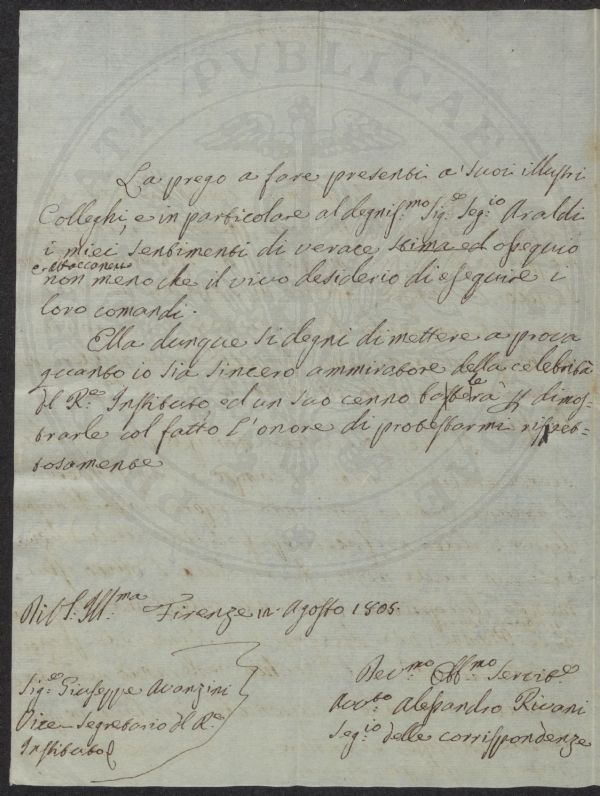 La prego a fare presenti a' suoi illustri
Colleghi, e in particolare al degniss.mo Sig.e Seg.io Araldi
i miei sentimenti di verace stima ed ossequio
non meno che il vivo desiderio di eseguire i
loro comandi.
Ella dunque si degni di mettere a prova
quanto io sia sincero ammiratore della celebrità
del R.e Instituto, ed un suo cenno basterà dimos=
trarle col fatto l'onore di protestarmi rispet=
tosamente
Di V. S. Ill.ma Firenze Agosto 1805.
Sig.e Giuseppe Avanzini
Vice-Segretario del R.e
Instituto
Dev.mo Obb.mo Servit.e
Avv.to Alessandro Rivani
Seg.io delle corrispondenze
PVBLICAE